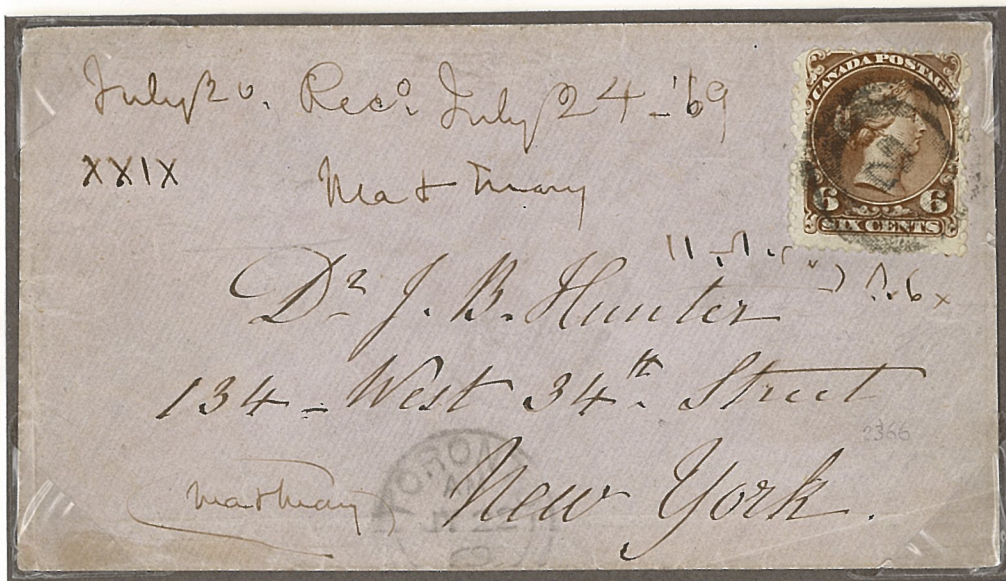 July 20. Recd July 24 - '69
XXIX
Ma & Mary
CANADA POSTAGE
6 6
SIX CENTS
Dr J. B. Hunter
134 - West 34th. Street
2366
New York.
Ma & Mary
TORONT